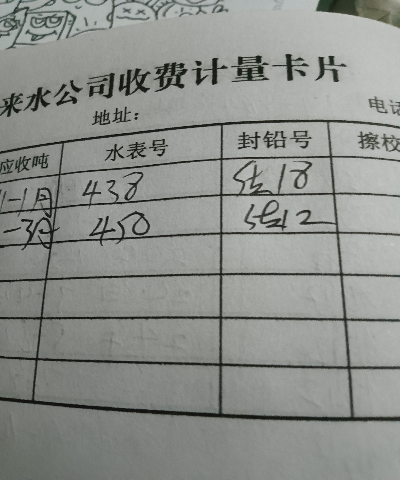 来水公司收费计量卡片
地址： 电话
应收吨 水表号 封铅号 擦校
11-1月 438 实18
-3月 450 实12